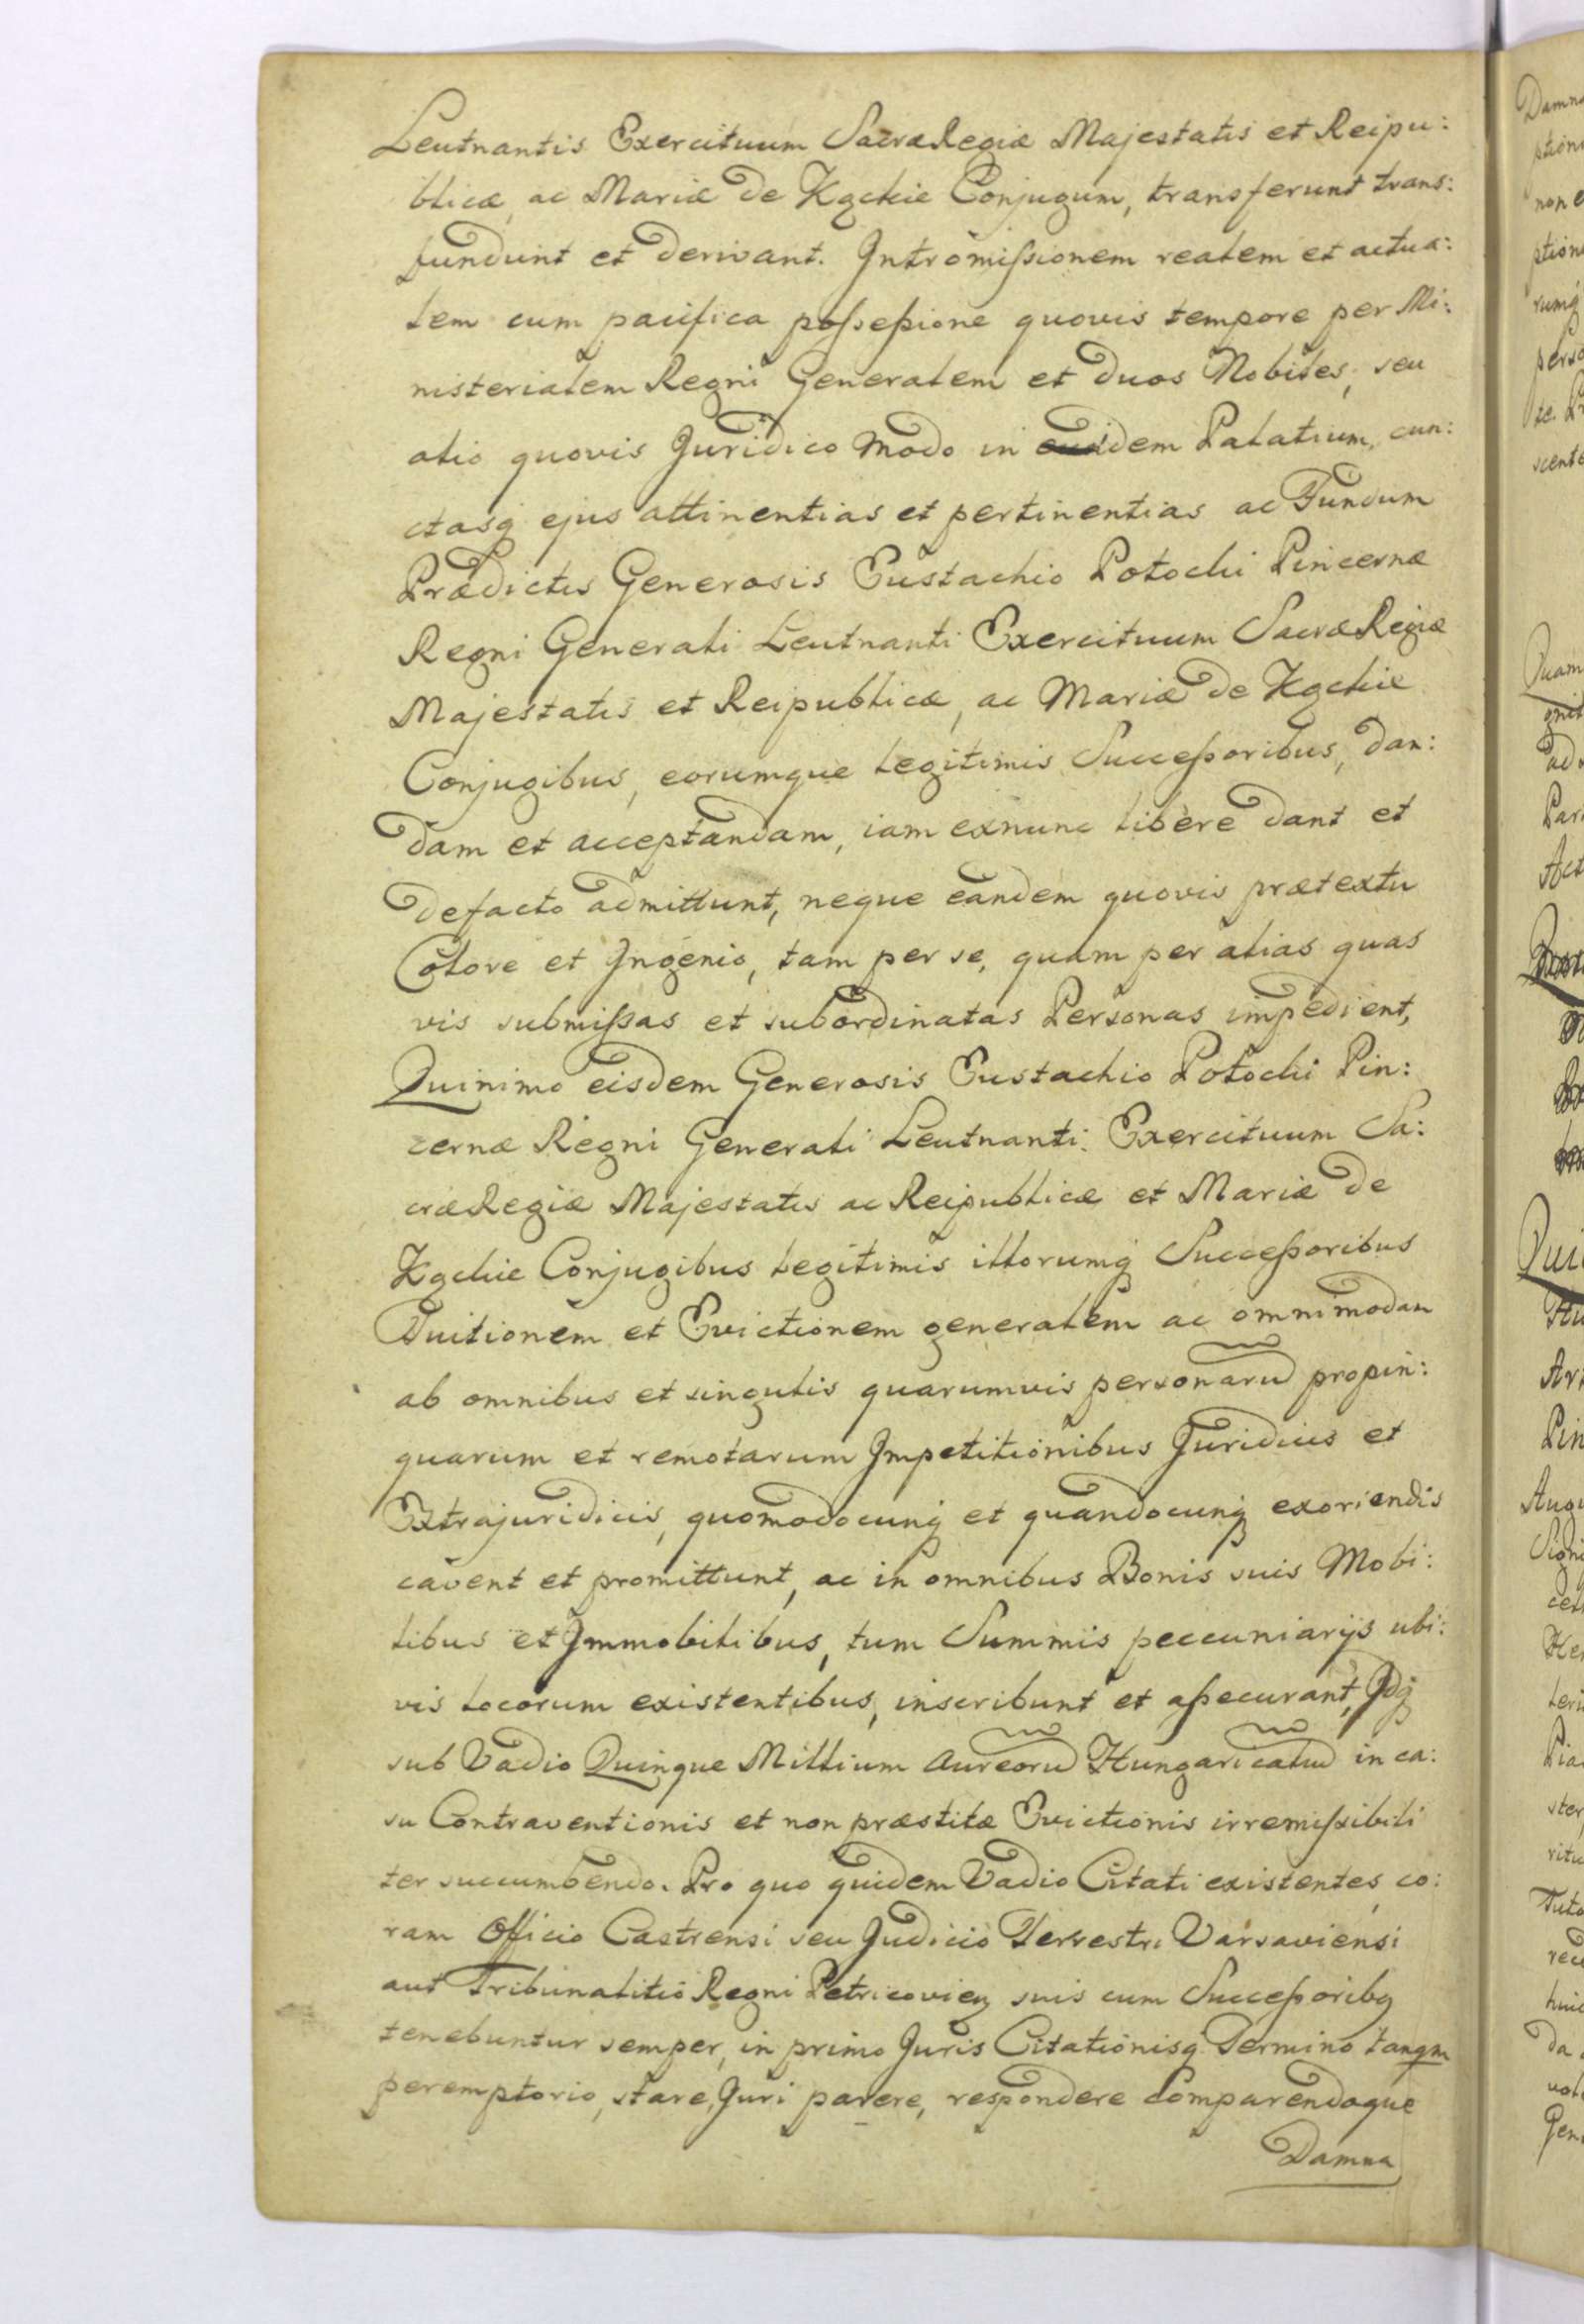 Leutnantis Exercituum SacræRegiæ Majestatis et Reipu:
blicæ, ac Mariæ de Kąckie Conjugum, transferunt trans:
fundunt et derivant. Intromissionem realem et actua:
lem cum pacifica possessione quovis tempore per Mi:
nisterialem Regni Generalem et duos Nobiles, seu
alio quovis Juridico modo in dem Palatium, cun:
ctasq ejus attinentias et pertinentias ac Fundum
Prædictis Generosis Eustachio Potocki Pincernæ
Regni Generali Leutnanti Exercituum SacræRegiæ
Majestatis et Reipublicæ, ac Mariæ de Kąckie
Conjugibus, eorumque legitimis Successoribus, dan:
dam et acceptandam, iam exnunc libere dant et
defacto admittunt, neque eandem quovis prætextu
Colore et Ingenio, tam per se, quam per alias quas
vis submissas et subordinatas Personas impedient,
Quinimo eisdem Generosis Eustachio Potocki Pin:
cernæ Regni Generali Leutnanti Exercituum Sa:
cræRegiæ Majestatis ac Reipublicæ et Mariæ de
Kąckie Conjugibus legitimis illorumq Successoribus
Tuitionem et Evictionem generalem ac omnimodam
ab omnibus et singulis quarumvis personaru propin:
quarum et remotarum Impetitionibus Juridicis et
Extrajuridicis, quomodocunq et quandocunq exoriendis
cavent et promittunt, ac in omnibus Bonis suis Mobi:
libus et Immobilibus, tum Summis peccuniarijs ubi:
vis locorum existentibus, inscribunt et assecurant, Idq
sub Vadio Quinque Millium Aureoru Hungaricaliu in ca:
su Contraventionis et non præstitæ Evictionis irremissibili
ter succumbendo. Pro quo quidem Vadio Citati existentes, co:
ram Officio Castrensi seu Judicio Terrestri Varsaviensi
aut Tribunalitio Regni Petricovien suis cum Successoribq
tenebuntur semper, in primo Juris Citationisq Termino tanqm
peremptorio, stare, Juri parere, respondere Comparendoque
Damna